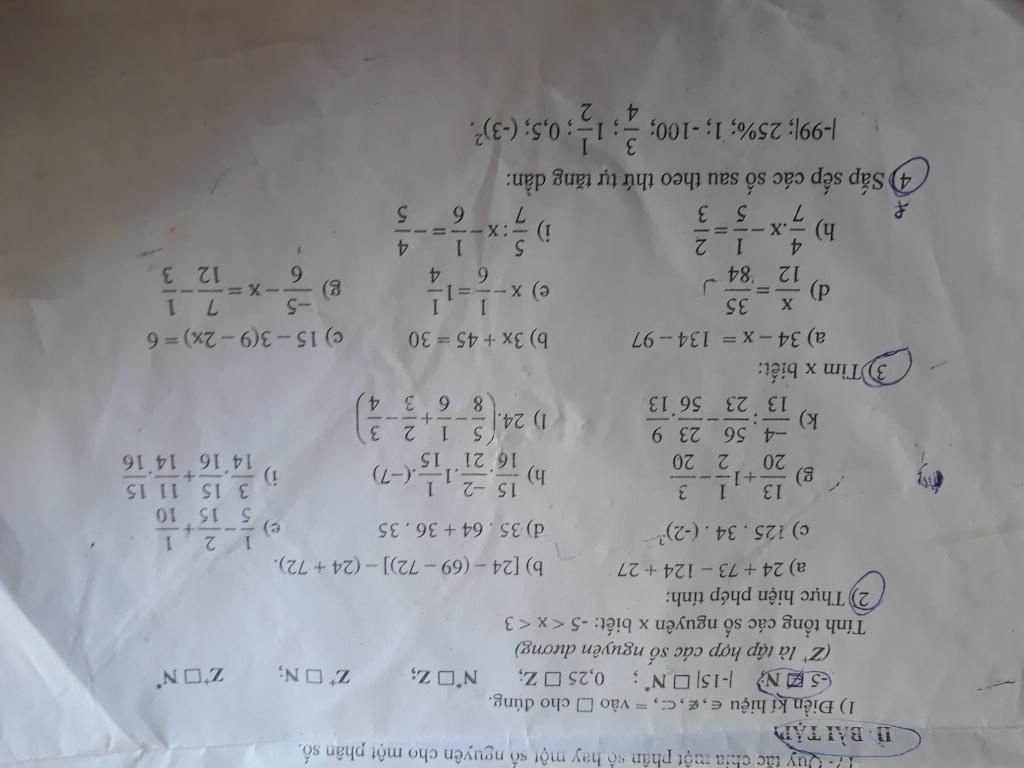 17- Quy tắc chia một phân số hay một số nguyên cho một phân số.
II. BÀI TẬP
1) Điền kí hiệu ∈, ∉, ⊂, = vào □ cho đúng.
-5 □ N; |-15| □ N*; 0,25 □ Z; N* □ Z; Z⁺ □ N; Z⁺ □ N*
(Z⁺ là tập hợp các số nguyên dương)
Tính tổng các số nguyên x biết: -5 < x < 3
2) Thực hiện phép tính:
a) 24 + 73 – 124 + 27 b) [24 – (69 – 72)] – (24 + 72).
c) 125 . 34 . (-2)³ d) 35 . 64 + 36 . 35 e) 1/5 − 2/15 + 1/10
g) 13/20 + 1 1/2 − 3/20 h) 15/16 . -2/21 . 1 1/15 . (−7) i) 3/14 . 15/16 + 11/14 . 15/16
k) −4/13 : 56/23 − 23/56 . 9/13 l) 24.(5/8 − 1/6 + 2/3 − 3/4)
3) Tìm x biết:
a) 34 – x = 134 – 97 b) 3x + 45 = 30 c) 15 – 3(9 – 2x) = 6
d) x/12 = 35/84 e) x − 1/6 = 1 1/4 g) −5/6 − x = 7/12 − 1/3
h) 4/7 .x − 1/5 = 2/3 i) 5/7 : x − 1/6 = − 4/5
4) Sắp sếp các số sau theo thứ tự tăng dần:
|-99|; 25%; 1; -100; 3/4; 1 1/2; 0,5; (-3)².